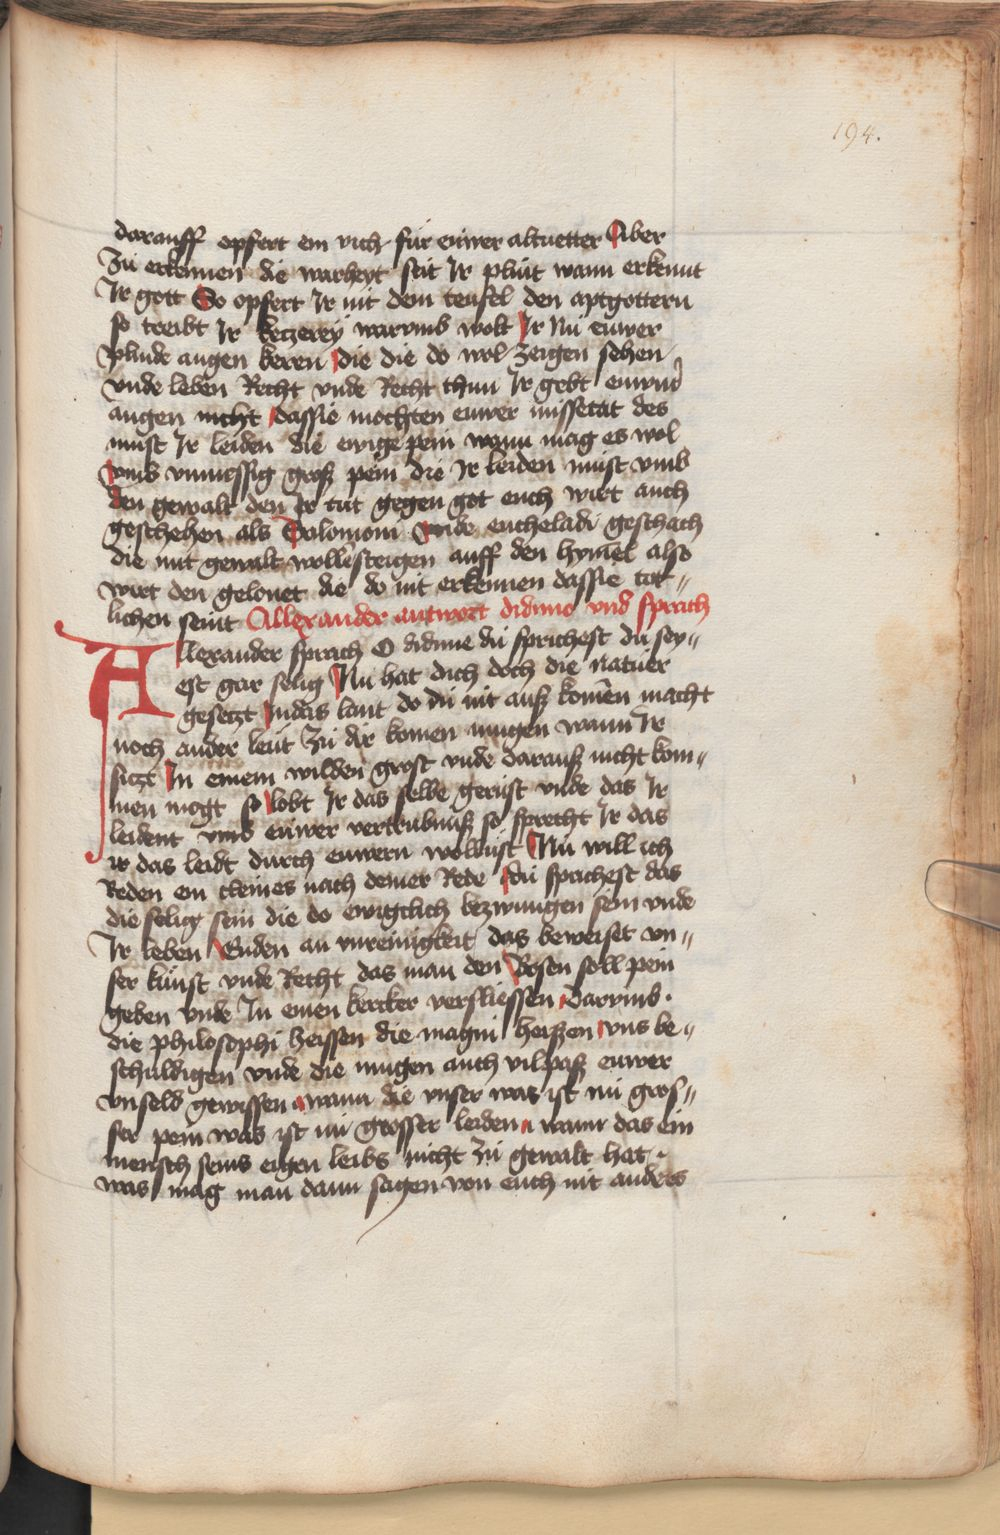 194.
darauff opfert ein vich fur eüwer altuetter Aber
Zu erkennen die warheyt seit Ir plint wann erkennt
Ir gott So opfert Ir nit dem teufel den aptgottern
so treibt Ir ketzerey warvmb wolt Ir Nu euwer
plinde augen keren die die do wol zeigen sehen
vnde leben Recht vnde Recht thun Ir gebt
augen nicht dassie mochten euwer missetat des
müst Ir leiden die ewige pein wann mag es wol
vmb vnmessig groß pein die Ir leiden müst vmb
den gewalt den Ir tüt gegen got euch wirt auch
geschehen als Salomoni vnde encheladi geschach
die mit gewalt wolle steigen auff den hymel also
wirt den gelonet die do nit erkennen dassie tot„
lichen seint Allexander antwort didimo vnd sprach
Allexander sprach O didime du sprichest du sey„
est gar selig Nu hat dich doch die natuer
gesetzt Indas lant do du nit auß komen macht
noch ander leüt Zu dir komen mugen wann Ir
sitzt In einem wilden grost vnde darauß nicht kom„
men mogt so lobt Ir das selbe gerüst vnde das Ir
leident vmb eüwer vertrubnuß so sprecht Ir das
ir das leidt durch euwern wollüst Nu will ich
Reden ein cleines nach deiner Rede du sprichest das
die selig sein die do ewigclich bezwungen sein vnde
Ir leben Enden an vnreinigkeit das beweiset vn„
ser künst vnde Recht das man den Bosen soll pein
geben vnde In einen kercker versliessen darvmb
die philosophi heissen die magni heissen vns be„
schuldigen vnde die mugen auch vil paß euwer
vnseld gewissen wann die vnser was ist nü gros„
ser pein was ist nü grosser leiden wann das ein
mensch seins eigen leibs nicht Zu gewalt hat
was mag man dann sagen von euch nit anders